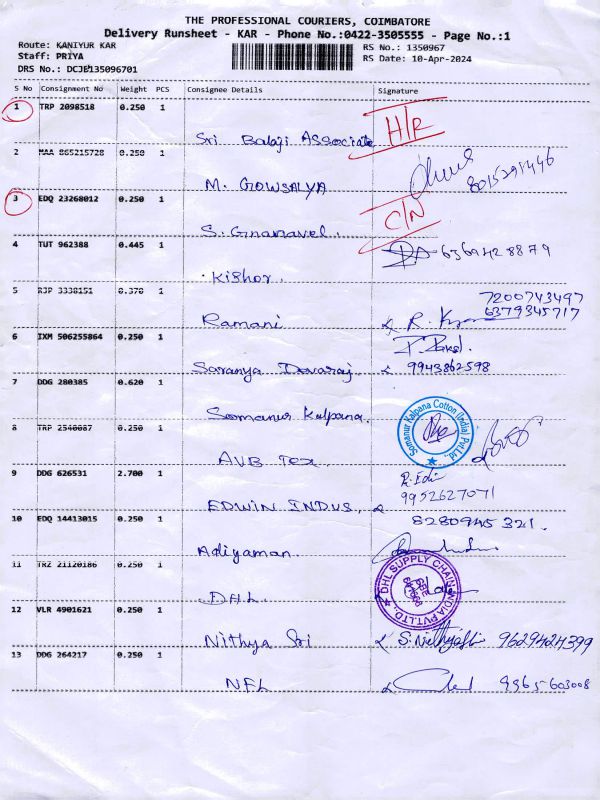 THE PROFESSIONAL COURIERS, COIMBATORE
Delivery Runsheet - KAR - Phone No.:0422-3505555 - Page No.:1
Route: KANIYUR KAR
RS No.: 1350967
Staff: PRIYA
RS Date: 10-Apr-2024
DRS No.: DCJE135096701
S No Consignment No Weight PCS Consignee Details Signature
1 TRP 2098518 0.250 1
Sri Balaji Associate H/R
2 MAA 865215728 0.250 1
M. GOWSALYA 8015291446
3 EDQ 23268012 0.250 1
S. Gnanavel. C/N
4 TUT 962388 0.445 1
Kishor. 6369428879
5 RJP 3338151 0.370 1
Ramani R. 7200743497
6379345717
6 IXM 506255864 0.250 1
Saranya Devaraj 9943862598
7 DDG 280385 0.620 1
Somanur Kalpana.
Somanur Kalpana Cotton (India) Pvt.Ltd.
8 TRP 2540087 0.250 1
AVB Tex
9 DDG 626531 2.700 1
EDWIN INDUS, R. Edi
9952627071
10 EDQ 14413015 0.250 1
8280945321.
Adiyaman.
11 TRZ 21120186 0.250 1
DHL
DHL SUPPLY CHAIN INDIA PVT.LTD.
12 VLR 4901621 0.250 1
Nithya Sri S. Nithyasri 9629424399
13 DDG 264217 0.250 1
NFL 9965603008